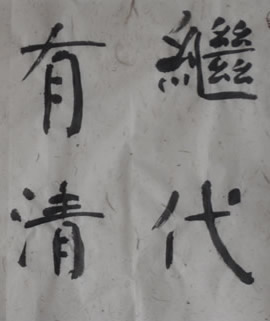 繼代
有清